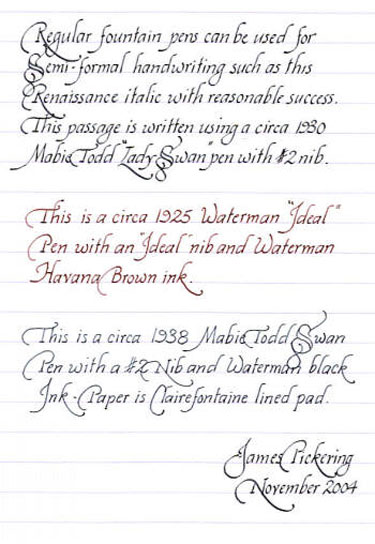 Regular fountain pens can be used for
Semi-formal handwriting such as this
Renaissance italic with reasonable success.
This passage is written using a circa 1930
Mabie Todd "Lady Swan" pen with #2 nib.
This is a circa 1925 Waterman "Ideal"
Pen with an "Ideal" nib and Waterman
Havana Brown ink.
This is a circa 1938 Mabie Todd Swan
Pen with a #2 Nib and Waterman black
Ink. Paper is Clairefontaine lined pad.
James Pickering
November 2004